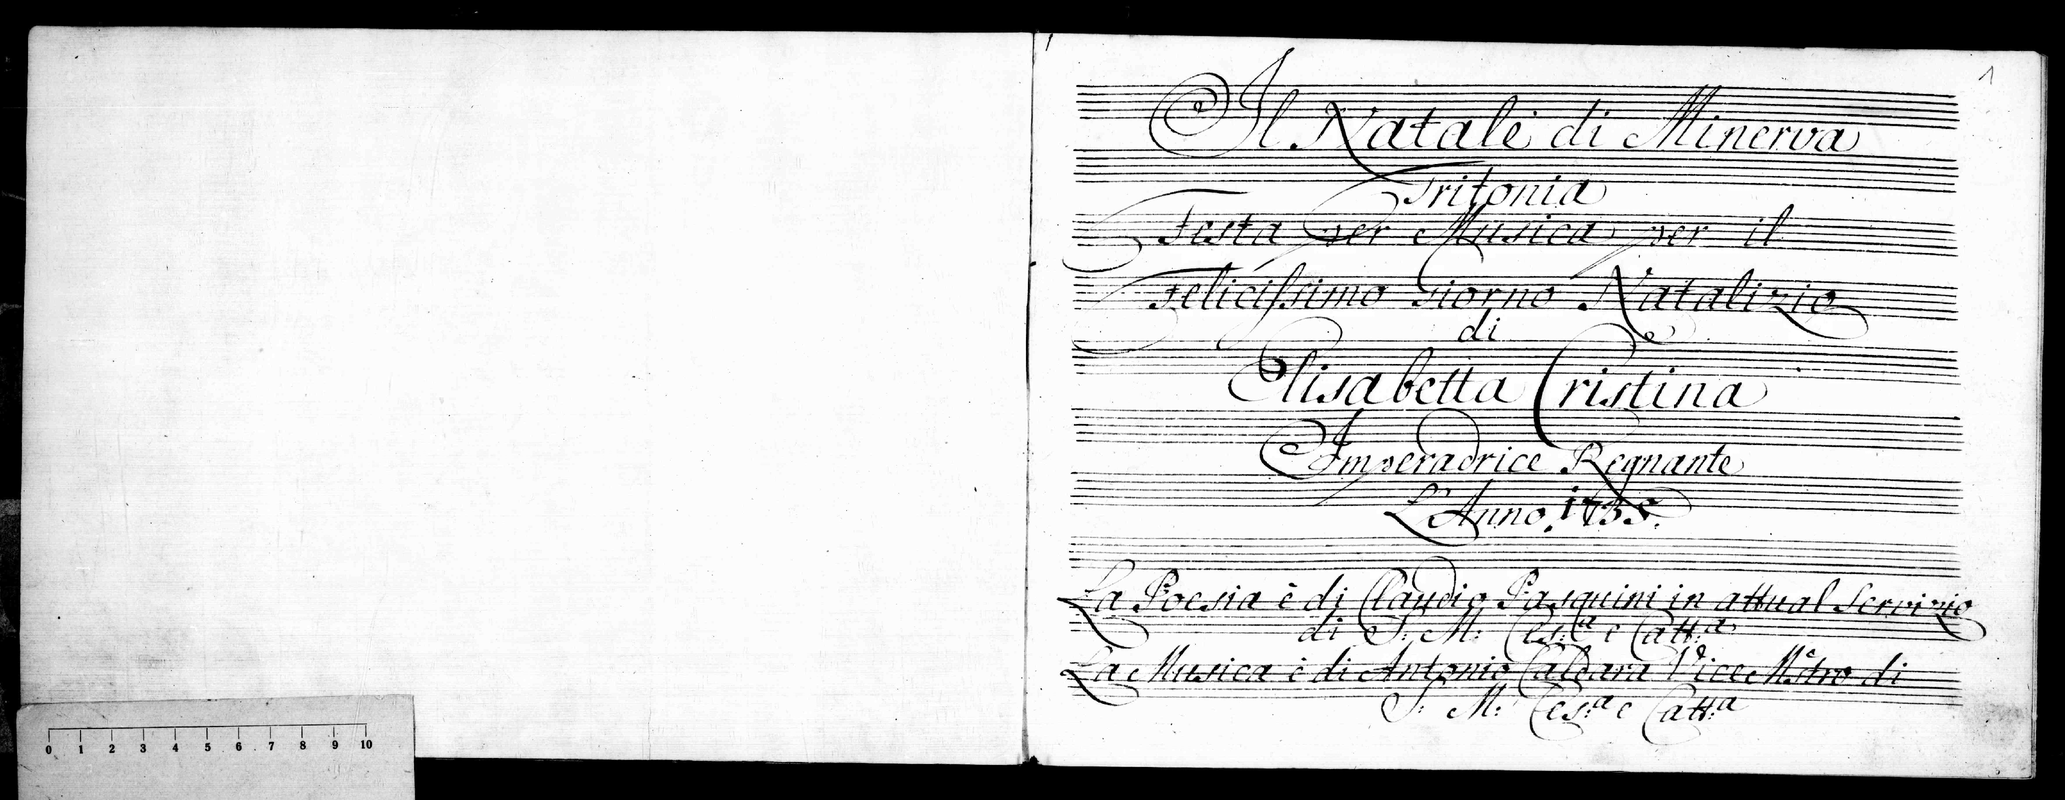 1
Il Natale di Minerva
Tritonia
Festa per Musica per il
Felicissimo Giorno Natalizio
di
Elisabetta Cristina
Imperadrice Regnante
L'Anno 1735.
La Poesia è di Claudio Pasquini in attual Servizio
di S: M: Ces:a e Catt:a
La Musica è di Antonio Caldara Vice Mstro di
S: M: Ces:a e Catt:a
0 1 2 3 4 5 6 7 8 9 10